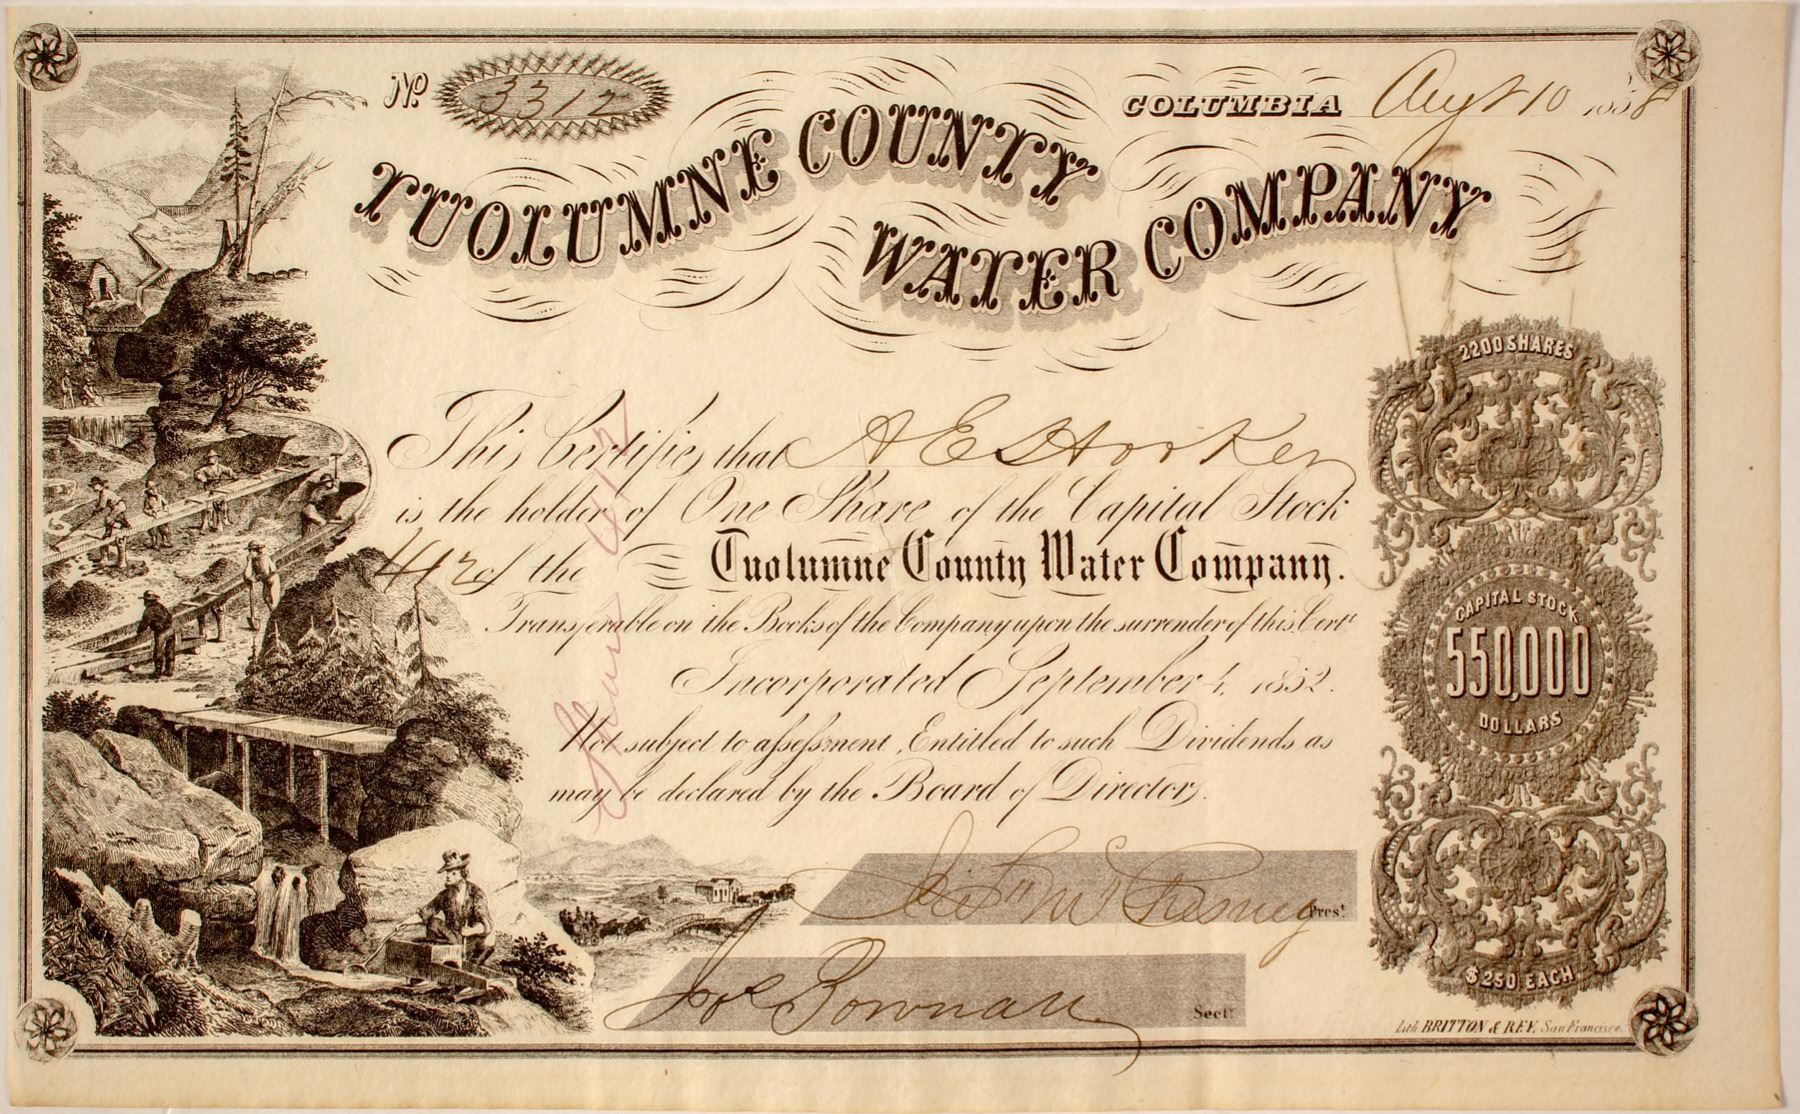 No. 3312
COLUMBIA Augt 10 1858
TUOLUMNE COUNTY
WATER COMPANY
This Certifies that A E Hooker
is the holder of One Share of the Capital Stock
412 of the Tuolumne County Water Company.
Transferable on the Books of the Company upon the surrender of this Certt.
Incorporated September 4, 1852.
Not subject to assessment, Entitled to such Dividends as
may be declared by the Board of Directors.
Prest.
Jos Bownan
Sect.
Share 412
2200 SHARES
CAPITAL STOCK
550,000
DOLLARS
$250 EACH
Lith. BRITTON & REY, San Francisco.